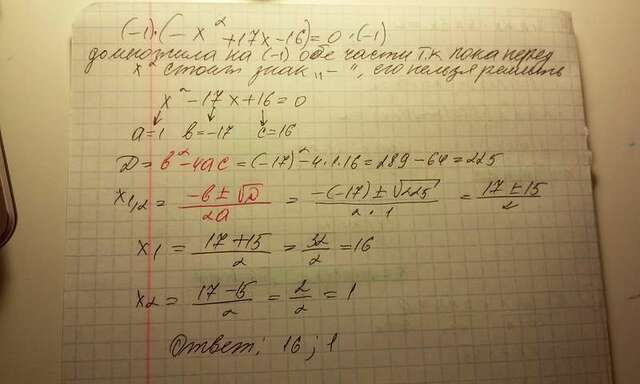 (-1)·(-x²+17x-16)=0·(-1)
домножила на (-1) обе части т.к пока перед
x² стоит знак „-", его нельзя решить
x²-17x+16=0
a=1 b=-17 c=16
D=b²-4ac=(-17)²-4·1·16=289-64=225
x1,2=(-b±√D)/2a=(-(-17)±√225)/(2·1)=(17±15)/2
x1=(17+15)/2=32/2=16
x2=(17-15)/2=2/2=1
Ответ: 16; 1